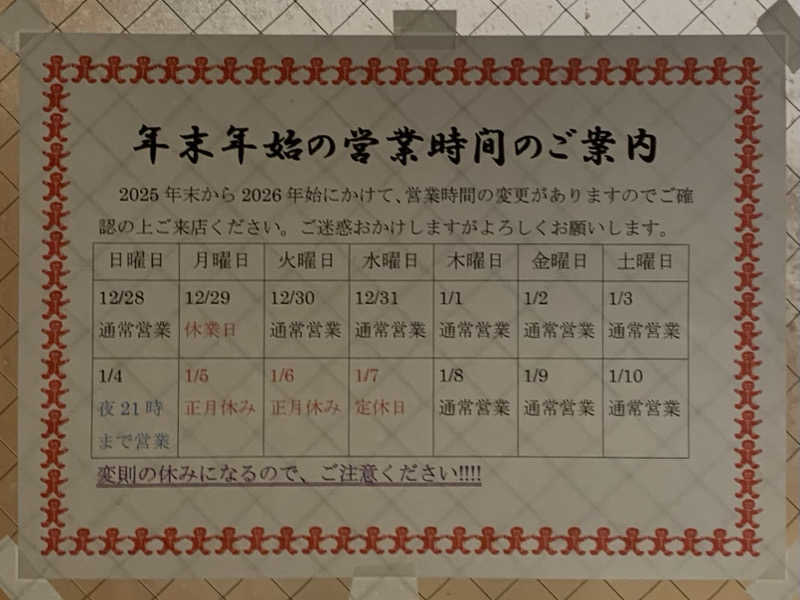 年末年始の営業時間のご案内
2025年末から2026年始にかけて、営業時間の変更がありますのでご確
認の上ご来店ください。ご迷惑おかけしますがよろしくお願いします。
日曜日 月曜日 火曜日 水曜日 木曜日 金曜日 土曜日
12/28 12/29 12/30 12/31 1/1 1/2 1/3
通常営業 休業日 通常営業 通常営業 通常営業 通常営業 通常営業
1/4 1/5 1/6 1/7 1/8 1/9 1/10
夜21時 正月休み 正月休み 定休日 通常営業 通常営業 通常営業
まで営業
変則の休みになるので、ご注意ください!!!!